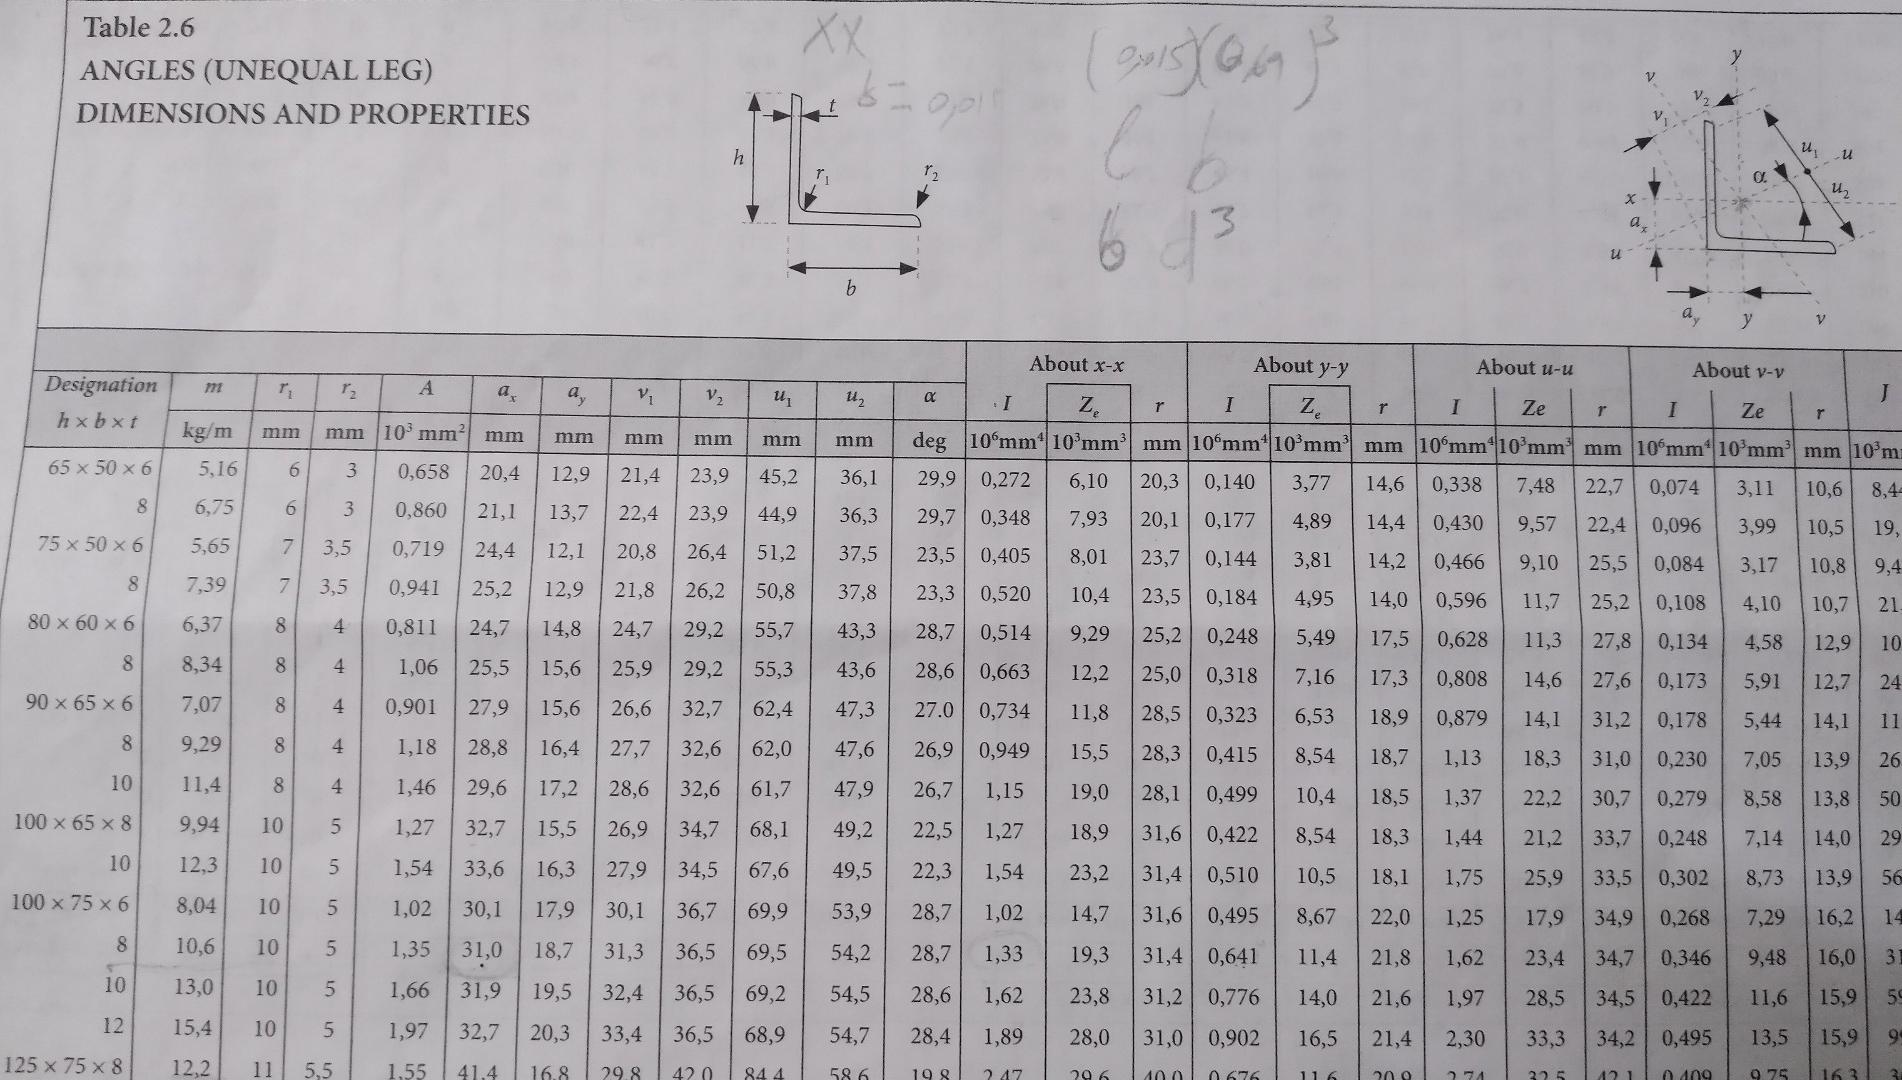 Table 2.6
ANGLES (UNEQUAL LEG)
DIMENSIONS AND PROPERTIES
XX
b = 0,01
(0,015)(0,69)³
l b
b d³
h t r₁ r₂ b
y v v₂ v₁ u₁ u α u₂ x aₓ u a_y y v
About x-x About y-y About u-u About v-v
Designation m r₁ r₂ A aₓ a_y v₁ v₂ u₁ u₂ α I Zₑ r I Zₑ r I Ze r I Ze r J
h × b × t kg/m mm mm 10³ mm² mm mm mm mm mm mm deg 10⁶mm⁴ 10³mm³ mm 10⁶mm⁴ 10³mm³ mm 10⁶mm⁴ 10³mm³ mm 10⁶mm⁴ 10³mm³ mm 10³m
65 × 50 × 6 5,16 6 3 0,658 20,4 12,9 21,4 23,9 45,2 36,1 29,9 0,272 6,10 20,3 0,140 3,77 14,6 0,338 7,48 22,7 0,074 3,11 10,6 8,4
8 6,75 6 3 0,860 21,1 13,7 22,4 23,9 44,9 36,3 29,7 0,348 7,93 20,1 0,177 4,89 14,4 0,430 9,57 22,4 0,096 3,99 10,5 19,
75 × 50 × 6 5,65 7 3,5 0,719 24,4 12,1 20,8 26,4 51,2 37,5 23,5 0,405 8,01 23,7 0,144 3,81 14,2 0,466 9,10 25,5 0,084 3,17 10,8 9,4
8 7,39 7 3,5 0,941 25,2 12,9 21,8 26,2 50,8 37,8 23,3 0,520 10,4 23,5 0,184 4,95 14,0 0,596 11,7 25,2 0,108 4,10 10,7 21,
80 × 60 × 6 6,37 8 4 0,811 24,7 14,8 24,7 29,2 55,7 43,3 28,7 0,514 9,29 25,2 0,248 5,49 17,5 0,628 11,3 27,8 0,134 4,58 12,9 10
8 8,34 8 4 1,06 25,5 15,6 25,9 29,2 55,3 43,6 28,6 0,663 12,2 25,0 0,318 7,16 17,3 0,808 14,6 27,6 0,173 5,91 12,7 24
90 × 65 × 6 7,07 8 4 0,901 27,9 15,6 26,6 32,7 62,4 47,3 27.0 0,734 11,8 28,5 0,323 6,53 18,9 0,879 14,1 31,2 0,178 5,44 14,1 11
8 9,29 8 4 1,18 28,8 16,4 27,7 32,6 62,0 47,6 26,9 0,949 15,5 28,3 0,415 8,54 18,7 1,13 18,3 31,0 0,230 7,05 13,9 26
10 11,4 8 4 1,46 29,6 17,2 28,6 32,6 61,7 47,9 26,7 1,15 19,0 28,1 0,499 10,4 18,5 1,37 22,2 30,7 0,279 8,58 13,8 50
100 × 65 × 8 9,94 10 5 1,27 32,7 15,5 26,9 34,7 68,1 49,2 22,5 1,27 18,9 31,6 0,422 8,54 18,3 1,44 21,2 33,7 0,248 7,14 14,0 29
10 12,3 10 5 1,54 33,6 16,3 27,9 34,5 67,6 49,5 22,3 1,54 23,2 31,4 0,510 10,5 18,1 1,75 25,9 33,5 0,302 8,73 13,9 56
100 × 75 × 6 8,04 10 5 1,02 30,1 17,9 30,1 36,7 69,9 53,9 28,7 1,02 14,7 31,6 0,495 8,67 22,0 1,25 17,9 34,9 0,268 7,29 16,2 14
8 10,6 10 5 1,35 31,0 18,7 31,3 36,5 69,5 54,2 28,7 1,33 19,3 31,4 0,641 11,4 21,8 1,62 23,4 34,7 0,346 9,48 16,0 31
10 13,0 10 5 1,66 31,9 19,5 32,4 36,5 69,2 54,5 28,6 1,62 23,8 31,2 0,776 14,0 21,6 1,97 28,5 34,5 0,422 11,6 15,9 59
12 15,4 10 5 1,97 32,7 20,3 33,4 36,5 68,9 54,7 28,4 1,89 28,0 31,0 0,902 16,5 21,4 2,30 33,3 34,2 0,495 13,5 15,9 99
125 × 75 × 8 12,2 11 5,5 1,55 41,4 16,8 29,8 42,0 84,4 58,6 19,8 2,47 29,6 40,0 0,676 11,6 20,9 2,74 32,5 42,1 0,409 9,75 16,3